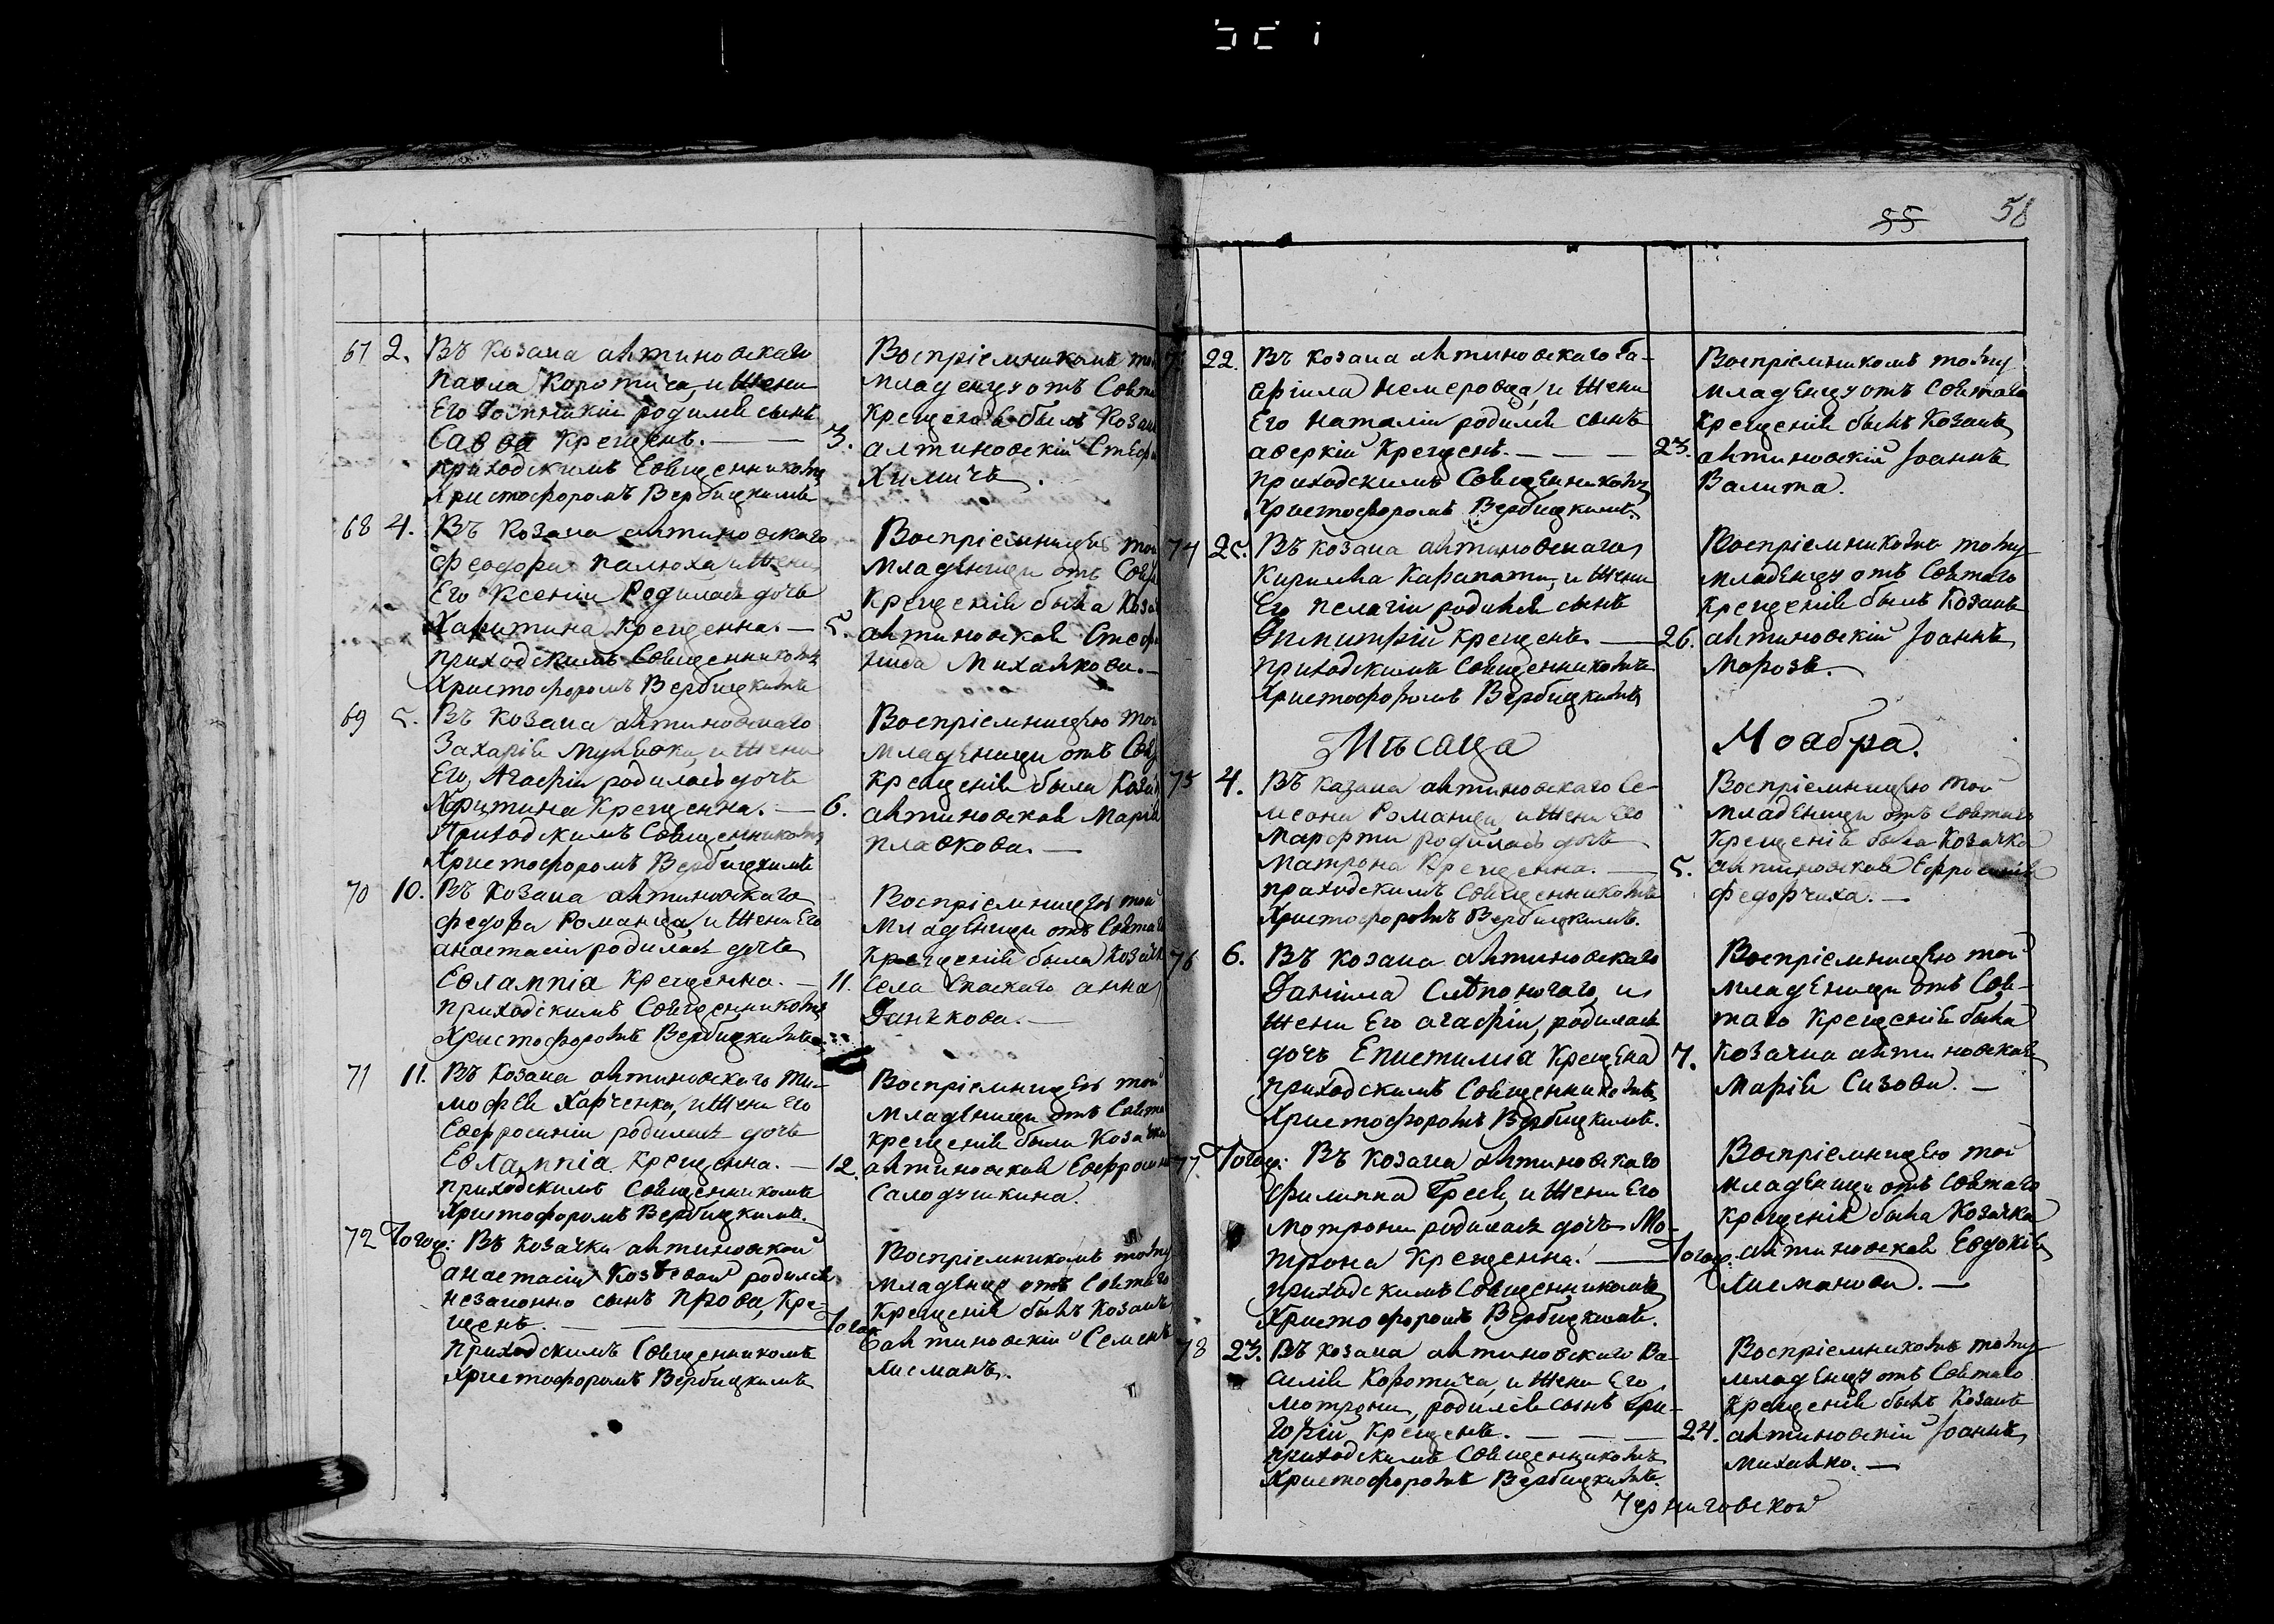 55 58
67 2. Въ козака алтиновскаго
Павла Коротича, и жени
Его родился сынъ
Савва крещенъ. — 3.
приходскимъ Священникомъ
Христофоромъ Вербицкимъ
Воспріемникомъ
младенцу отъ
крещенія былъ
алтиновскій
Химичъ.
68 4. Въ козака алтиновскаго
Феодора Палюха и жени
Его Ксеніи Родилась дочь
Харитина крещенна. — 5.
приходскимъ Священникомъ
Христофоромъ Вербицкимъ
млад‎еници отъ
крещенія была
алтиновская
Михалкова. —
69 5. Въ козака алтиновскаго
Захарія и жени
Его Агафіи родилась дочь
Харитина крещенна. — 6.
Приходскимъ Священникомъ
Христофоромъ Вербицкимъ
Воспріемницею
младеници отъ
крещенія была
алтиновская Марія
Плавкова. —
70 10. Въ козака алтиновскаго
Федора Романца, и жени Его
анастасіи родилась дочь
Евлампіа крещенна. — 11.
приходскимъ Священникомъ
Христофоромъ Вербицкимъ
Воспріемницею той
младеници отъ
крещенія была
села Спаскаго анна
Данькова. —
71 11. Въ козака алтиновскаго Ти-
мофея Харченка, и жени Его
Евфросиніи родилась дочь
Евлампіа крещенна. — 12.
приходскимъ Священникомъ
Христофоромъ Вербицкимъ.
Воспріемницею той
младеници отъ
крещенія была
алтиновская
Салодушкина
72 Тогож: Въ козачки алтиновской
анастасіи родился
незаконно сынъ Прова, кре-
щенъ. —
приходскимъ Священникомъ
Христофоромъ Вербицкимъ
Воспріемникомъ тому
младенцу отъ Святаго
крещенія былъ козакъ
алтиновскій Семенъ
Лисманъ.
22. Въ козака алтиновскаго Га-
вріила Немеровца, и жени
Его Наталіи родился сынъ
аверкій крещенъ. — — — 23.
приходскимъ Священникомъ
Христофоромъ Вербицкимъ.
Воспріемникомъ тому
младенцу отъ Святаго
крещенія былъ козакъ
алтиновскій Іоаннъ
Валита.
74 25. Въ козака алтиновскаго
Кирилла Карапати, и жени
Его Пелагіи родился сынъ
Димитрій крещенъ. — 26.
приходскимъ Священникомъ
Христофоромъ Вербицкимъ
Воспріемникомъ тому
младенцу отъ Святаго
крещенія былъ козакъ
алтиновскій Іоаннъ
Морозъ. —
Мѣсаца Ноабра.
75 4. Въ козака алтиновскаго Се-
меона Романца и жени Его
Марфти родилась дочь
Матрона крещенна. — 5.
приходскимъ Священникомъ
Христофоромъ Вербицкимъ.
Воспріемницею той
младеници отъ Святаго
крещенія была козачка
алтиновская Ефросинія
Федорчиха. —
76 6. Въ козака алтиновскаго
Даніила Слѣпоногаго, и
жени Его агафіи, родилась
дочь Епистиміа крещена 7.
приходскимъ Священникомъ
Христофоромъ Вербицкимъ.
Воспріемницею той
младеници отъ Свя-
таго крещенія была
козачка алтиновская
Марія Сизова. —
77 Тогож: Въ козака алтиновскаго
Филиппа и жени Его
Мотрони родилась дочь Мо-
трона крещенна. — Тогож.
приходскимъ Священникомъ
Христофоромъ Вербицкимъ.
Воспріемницею той
младеници отъ Святаго
крещенія была козачка
алтиновская Евдокія
Лисманова. —
78 23. Въ козака алтиновскаго Ва-
силія Коротича, и жени Его
Мотрони, родился сынъ Гри-
горій крещенъ. — — — 24.
приходскимъ Священникомъ
Христофоромъ Вербицкимъ.
Воспріемникомъ тому
младенцу отъ Святаго
крещенія былъ козакъ
алтиновскій Іоаннъ
Михалко. —
Черниговской